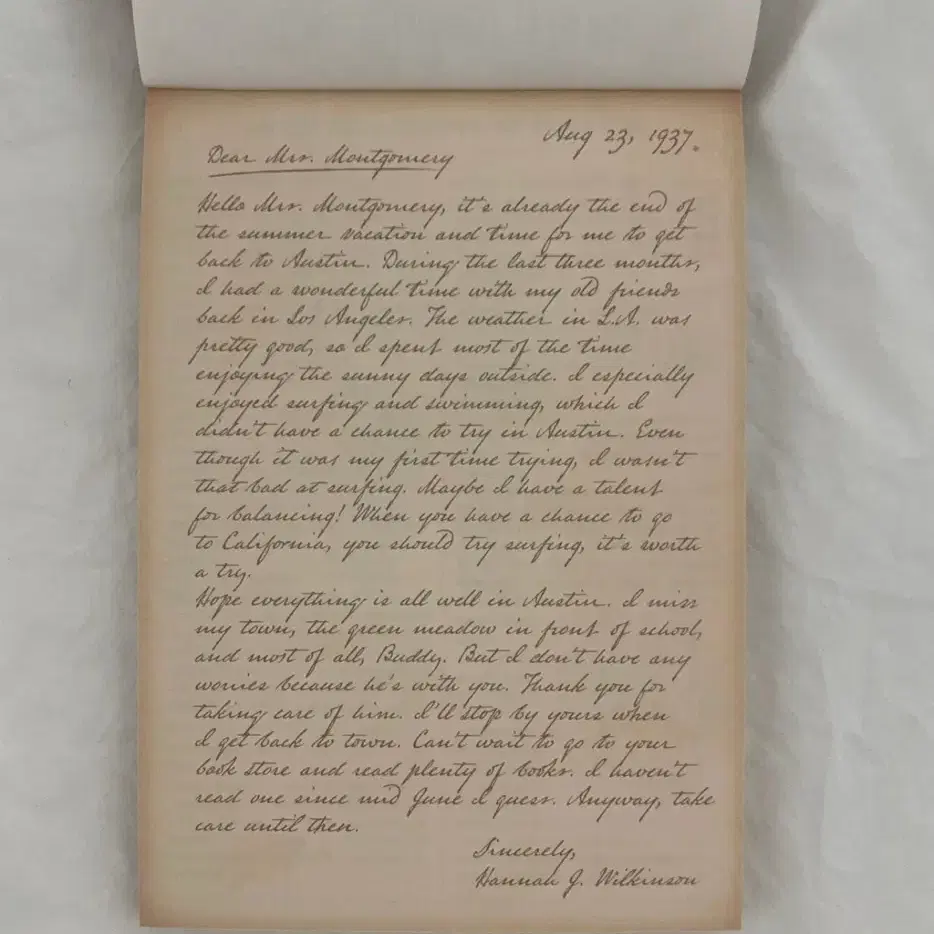 Aug 23, 1937.
Dear Mrs. Montgomery
Hello Mrs. Montgomery, it's already the end of
the summer vacation and time for me to get
back to Austin. During the last three months,
I had a wonderful time with my old friends
back in Los Angeles. The weather in L.A. was
pretty good, so I spent most of the time
enjoying the sunny days outside. I especially
enjoyed surfing and swimming, which I
didn't have a chance to try in Austin. Even
though it was my first time trying, I wasn't
that bad at surfing. Maybe I have a talent
for balancing! When you have a chance to go
to California, you should try surfing, it's worth
a try.
Hope everything is all well in Austin. I miss
my town, the green meadow in front of school,
and most of all, Buddy. But I don't have any
worries because he's with you. Thank you for
taking care of him. I'll stop by yours when
I get back to town. Can't wait to go to your
book store and read plenty of books. I haven't
read one since mid June I guess. Anyway, take
care until then.
Sincerely,
Hannah J. Wilkinson